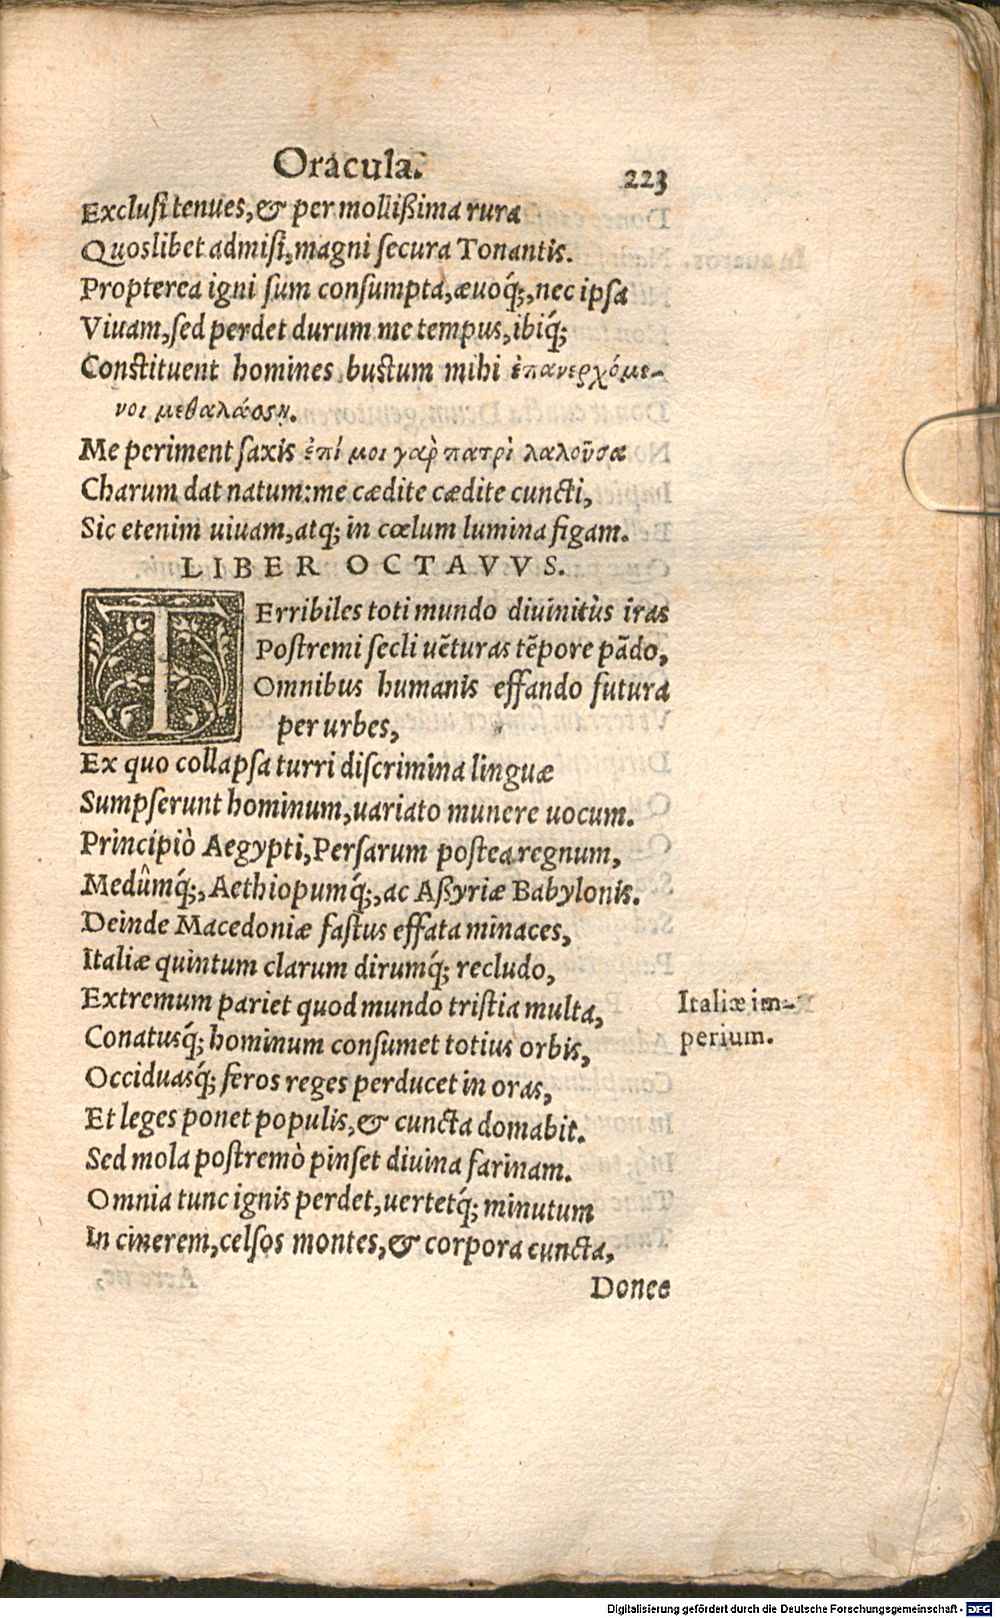 Oracula.
223
Exclusi tenues, & per mollißima rura
Quoslibet admisi, magni secura Tonantis.
Propterea igni sum consumpta, æuoq́;, nec ipsa
Viuam, sed perdet durum me tempus, ibiq́;
Constituent homines bustum mihi ἐπανερχόμε-
νοι μεθαλάοσῃ.
Me periment saxis ἐπί μοι γαρ̀ πατρὶ λαλοῦσα
Charum dat natum: me cædite cædite cuncti,
Sic etenim uiuam, atq; in cœlum lumina figam.
LIBER OCTAVVS.
TErribiles toti mundo diuinitùs iras
Postremi secli uẽturas tẽpore pãdo,
Omnibus humanis effando futura
per urbes,
Ex quo collapsa turri discrimina linguæ
Sumpserunt hominum, uariato munere uocum.
Principiò Aegypti, Persarum postea regnum,
Medûmq́;, Aethiopumq́;, ac Aßyriæ Babylonis.
Deinde Macedoniæ fastus effata minaces,
Italiæ quintum clarum dirumq́; recludo,
Extremum pariet quod mundo tristia multa,
Italiæ im-
perium.
Conatusq́; hominum consumet totius orbis,
Occiduasq́; feros reges perducet in oras,
Et leges ponet populis, & cuncta domabit.
Sed mola postremò pinset diuina farinam.
Omnia tunc ignis perdet, uertetq́; minutum
In cinerem, celsos montes, & corpora cuncta,
Donec
Digitalisierung gefördert durch die Deutsche Forschungsgemeinschaft - DFG